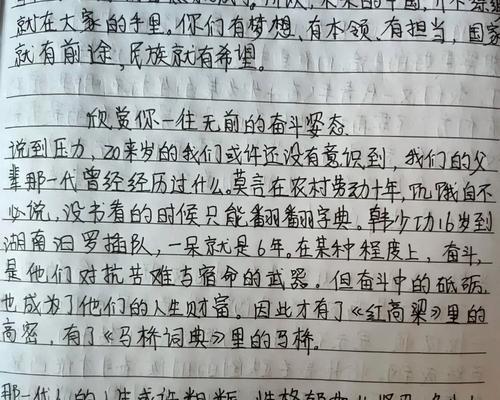 就在大家的手里。你们有梦想、有本领、有担当，国家
就有前途，民族就有希望。
欣赏你一往无前的奋斗姿态
说到压力，20来岁的我们或许还没有意识到，我们的父
辈那一代曾经经历过什么。莫言在农村劳动十年，饥饿自不
必说，没书看的时候只能翻翻字典。韩少功16岁到
湖南汨罗插队，一呆就是6年。在某种程度上，奋斗，
是他们对抗苦难与宿命的武器。但奋斗中的砥砺，
也成为了他们的人生财富。因此才有了《红高粱》里的
高密，有了《马桥词典》里的马桥。
那一代人的人生或许粗粝，性格